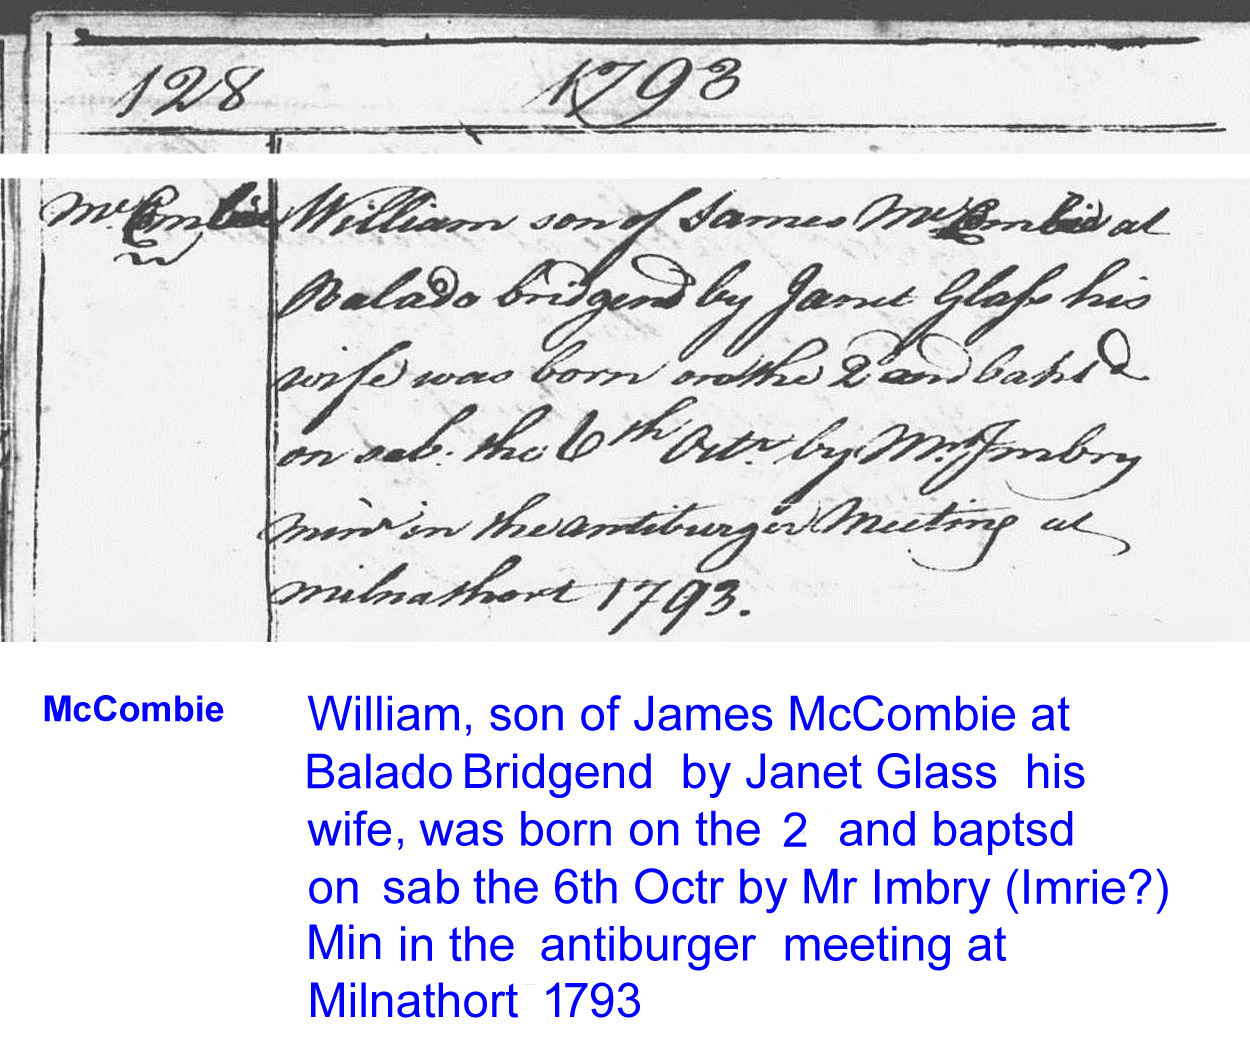 128 1793
McCombie William son of James McCombie at
Balado bridgend by Janet Glass his
wife was born on the 2 and bapts'd
on sab. the 6th Octr. by Mr. Imbry
minr in the antiburger Meeting at
milnathort 1793.
McCombie William, son of James McCombie at
Balado Bridgend by Janet Glass his
wife, was born on the 2 and baptsd
on sab the 6th Octr by Mr Imbry (Imrie?)
Min in the antiburger meeting at
Milnathort 1793